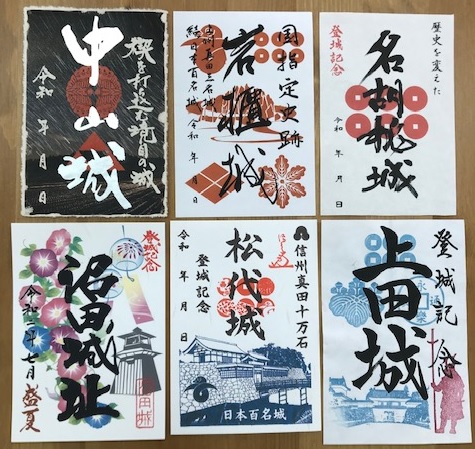 境目の城
中山城
令和 年 月 日
国指定史跡
岩櫃城
続日本百名城
令和 年 月 日
歴史を変えた
名胡桃城
登城記念
令和 年 月 日
登城記念
沼田城址
令和二年七月 盛夏
信州真田十万石
松代城
登城記念
令和 年 月 日
日本百名城
登城記念
上田城